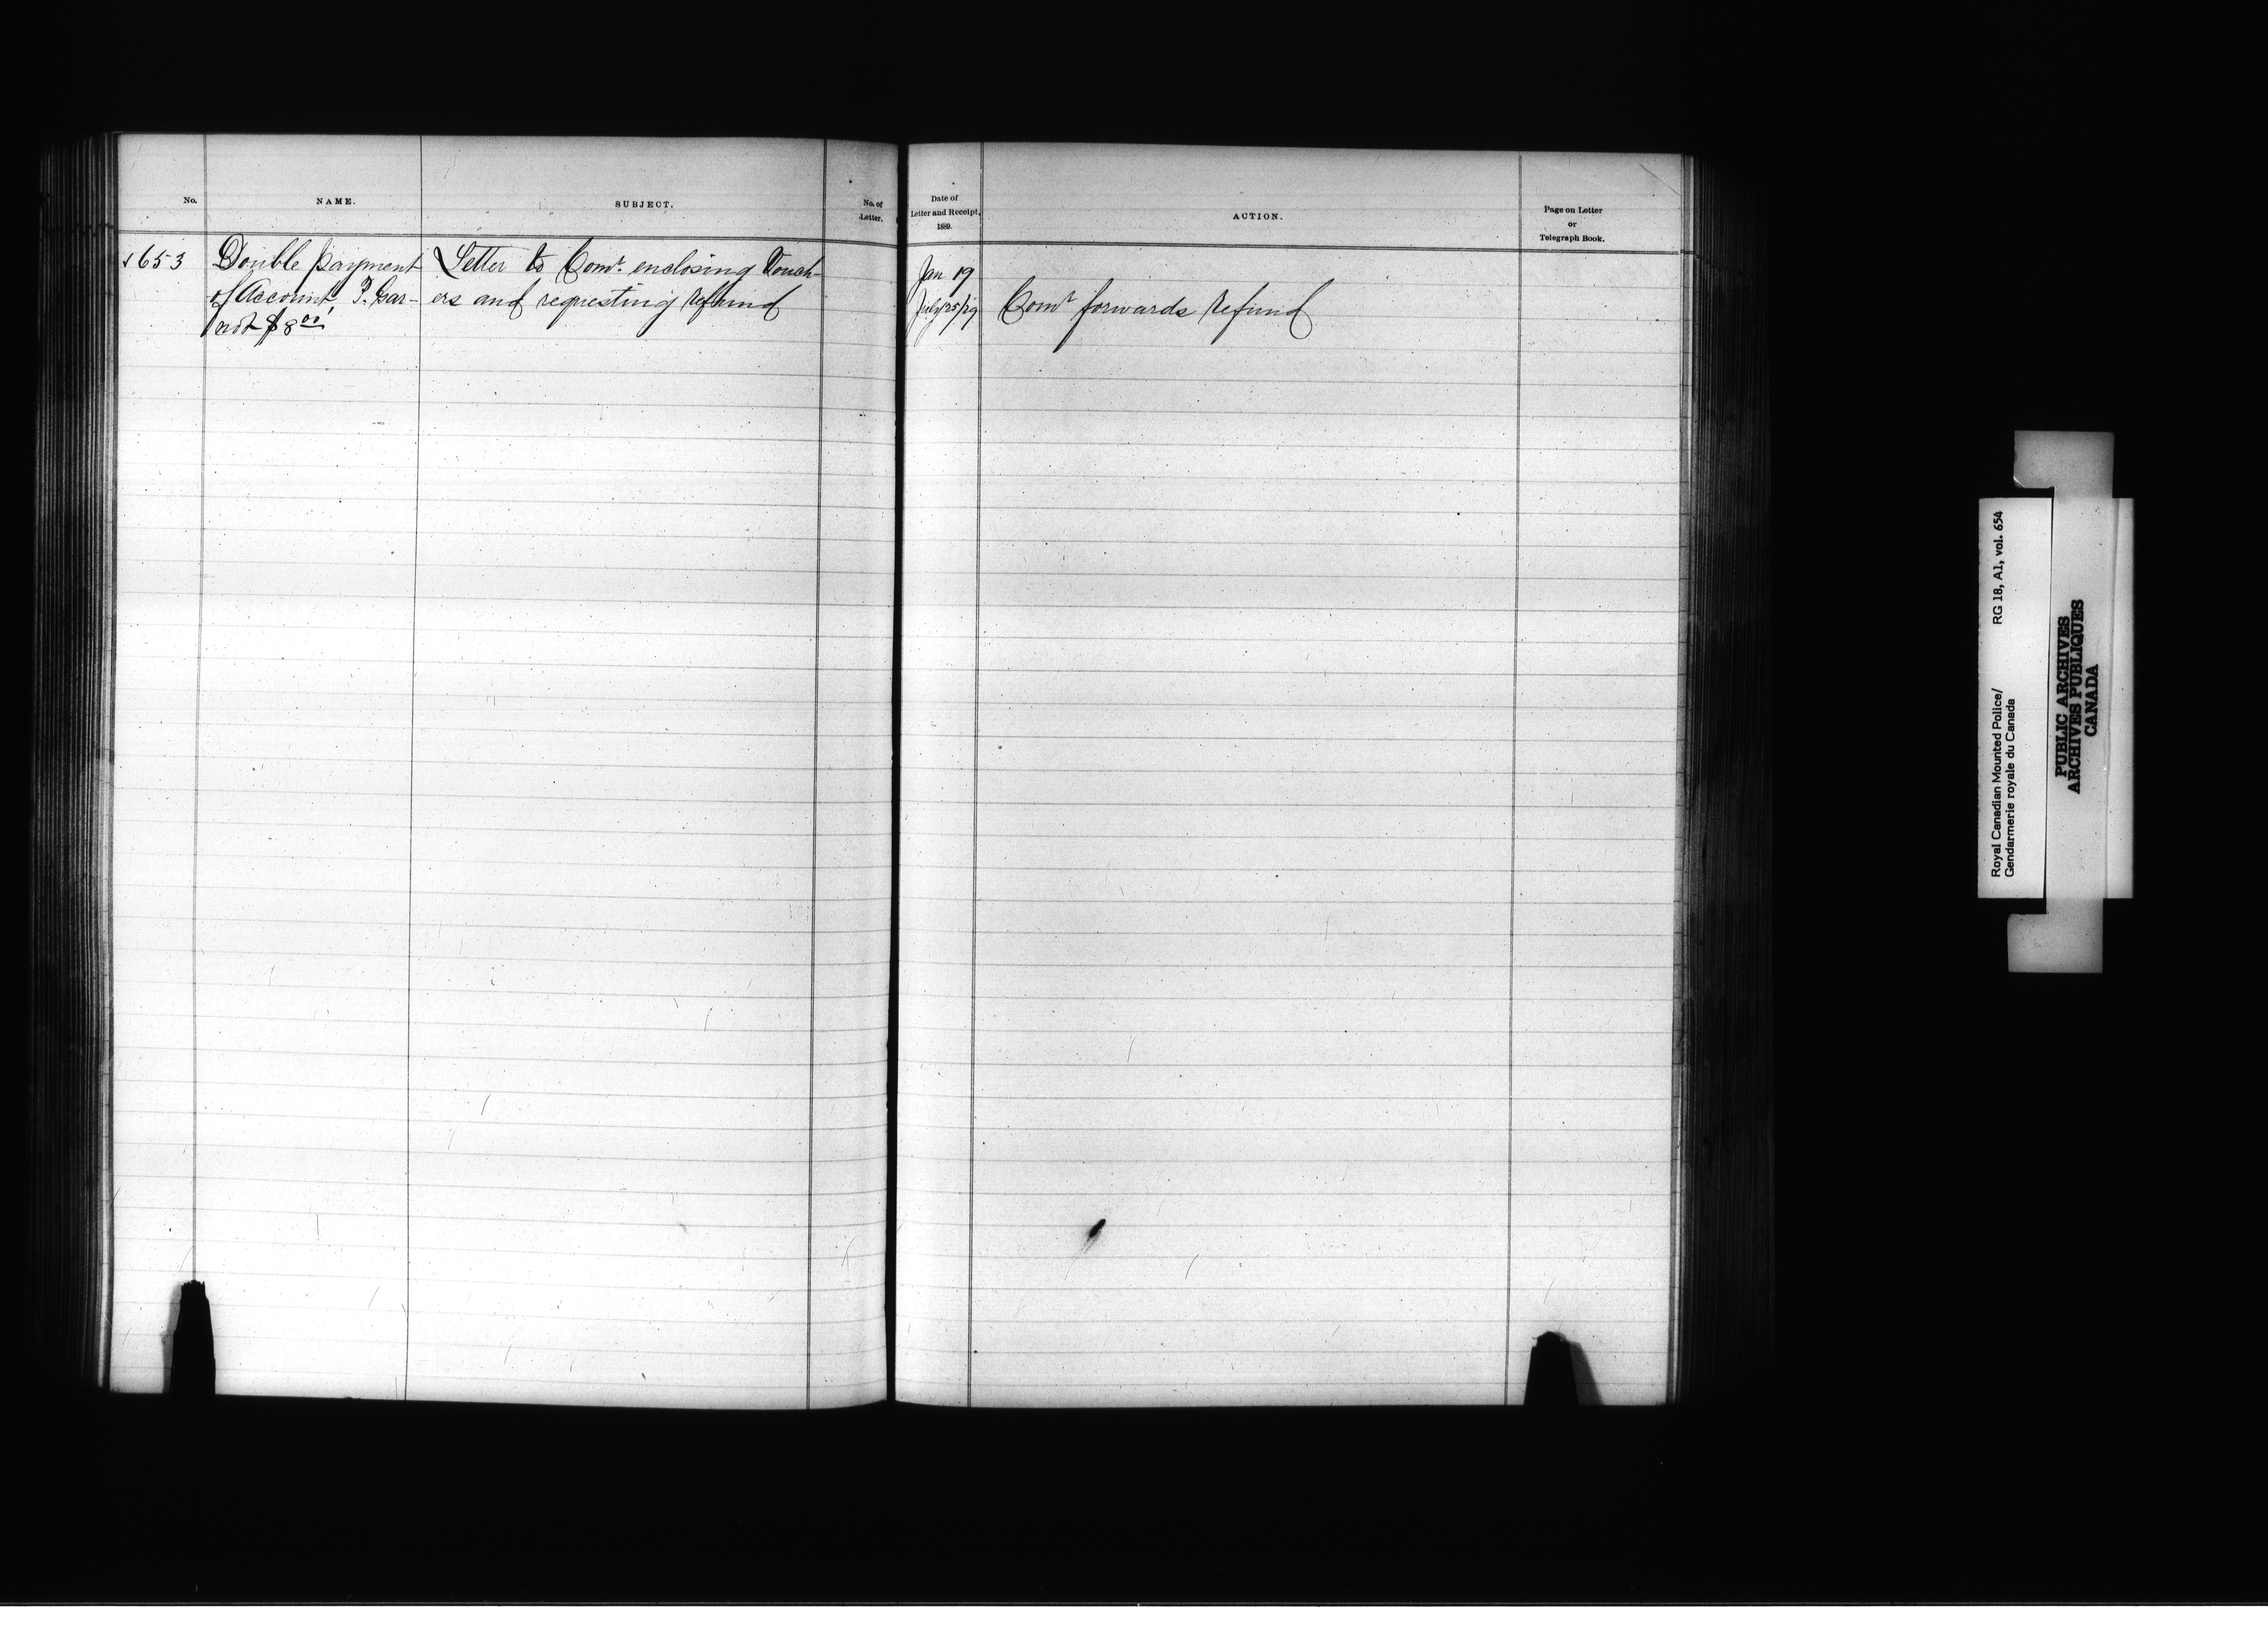 No.
NAME.
SUBJECT.
No. of
Letter.
Date of
Letter and Receipt,
1889.
ACTION.
Page on Letter
or
Telegraph Book.
653
Double payment
of Account
$8 00
Letter to Comr. enclosing Vouch-
ers and requesting refund
Jan 19
July 25/29
Comr forwards refund
Royal Canadian Mounted Police/ RG 18, A1, vol. 654
Gendarmerie royale du Canada
PUBLIC ARCHIVES
ARCHIVES PUBLIQUES
CANADA